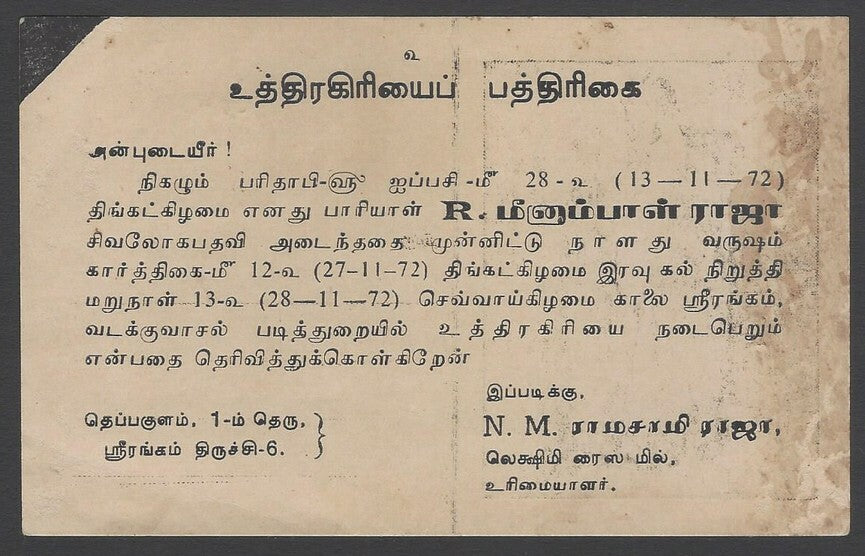 உ
உத்திரகிரியைப் பத்திரிகை
அன்புடையீர் !
நிகழும் பரிதாபி-௵ ஐப்பசி-௴ 28-உ (13—11—72)
திங்கட்கிழமை எனது பாரியாள் R. மீனாம்பாள் ராஜா
சிவலோகபதவி அடைந்ததை முன்னிட்டு நாளது வருஷம்
கார்த்திகை-௴ 12-உ (27-11-72) திங்கட்கிழமை இரவு கல் நிறுத்தி
மறுநாள் 13-உ (28—11—72) செவ்வாய்கிழமை காலை ஸ்ரீரங்கம்,
வடக்குவாசல் படித்துறையில் உத்திரகிரியை நடைபெறும்
என்பதை தெரிவித்துக்கொள்கிறேன்
இப்படிக்கு,
தெப்பகுளம், 1-ம் தெரு,
ஸ்ரீரங்கம் திருச்சி-6.
N. M. ராமசாமி ராஜா,
லெக்ஷிமி ரைஸ மில்,
உரிமையாளர்.